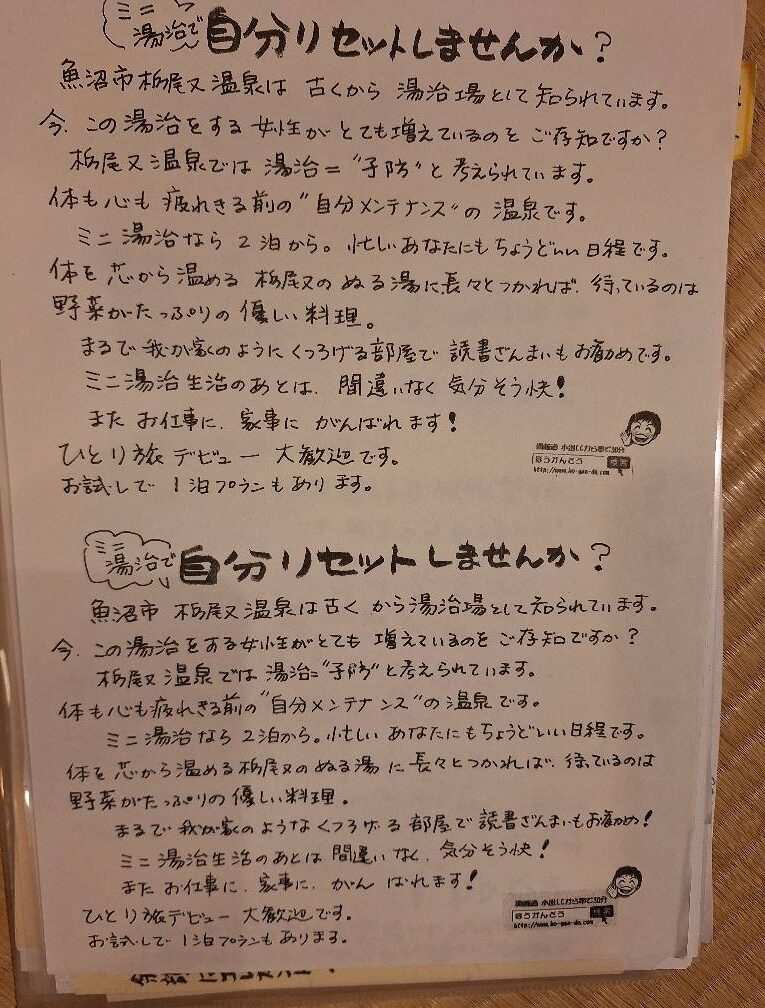 ミニ
湯治で
自分リセットしませんか？
魚沼市栃尾又温泉は 古くから 湯治場として知られています。
今、この湯治をする女性がとても増えているのをご存知ですか？
栃尾又温泉では湯治＝"予防"と考えられています。
体も心も疲れきる前の"自分メンテナンス"の温泉です。
ミニ湯治なら2泊から。忙しいあなたにもちょうどいい日程です。
体を芯から温める栃尾又のぬる湯に長々とつかれば、待っているのは
野菜がたっぷりの優しい料理。
まるで我が家のようにくつろげる部屋で読書ざんまいもお勧めです。
ミニ湯治生活のあとは、間違いなく気分そう快！
またお仕事に、家事にがんばれます！
ひとり旅デビュー大歓迎です。
お試しで1泊プランもあります。
関越道 小出I.Cから車で30分
ほうがんどう 検索
http://www.ho-gan-do.com
ミニ
湯治で
自分リセットしませんか？
魚沼市 栃尾又温泉は古くから湯治場として知られています。
今、この湯治をする女性がとても増えているのをご存知ですか？
栃尾又温泉では湯治＝"予防"と考えられています。
体も心も疲れきる前の"自分メンテナンス"の温泉です。
ミニ湯治なら2泊から。忙しいあなたにもちょうどいい日程です。
体を芯から温める栃尾又のぬる湯に長々とつかれば、待っているのは
野菜がたっぷりの優しい料理。
まるで我が家のようなくつろげる部屋で読書ざんまいもお勧め！
ミニ湯治生活のあとは間違いなく、気分そう快！
またお仕事に、家事に、がんばれます！
ひとり旅デビュー大歓迎です。
お試しで1泊プランもあります。
関越道 小出I.Cから車で30分
ほうがんどう 検索
http://www.ho-gan-do.com